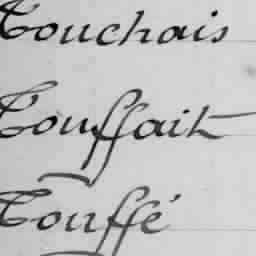 Touchais
Touffait
Touffé